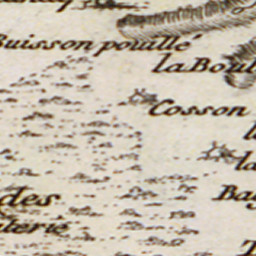 Buisson pouillé
la Boul
Cosson
la
des
Bag
terie